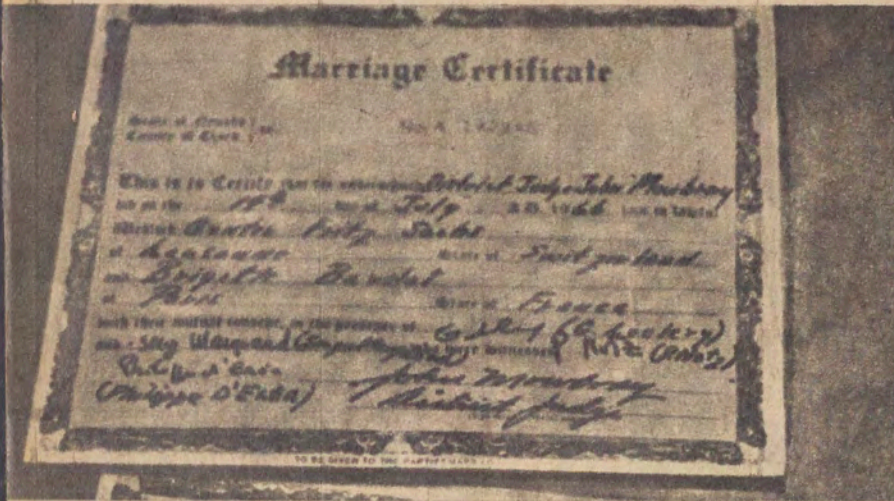 Marriage Certificate
State of Nevada
County of Clark
No. A
This is to Certify that the undersigned District Judge John Mowbray
did on the 14th day of July A.D. 1966 join in lawful
Wedlock Gunter Fritz Sachs
of Lausanne State of Switzerland
and Brigitte Bardot
of Paris State of France
with their mutual consent, in the presence of
and Serge Marquand witnesses
Philippe d'Exea John Mowbray
(Philippe D'Exea) District Judge
TO BE GIVEN TO THE PARTIES MARRIED